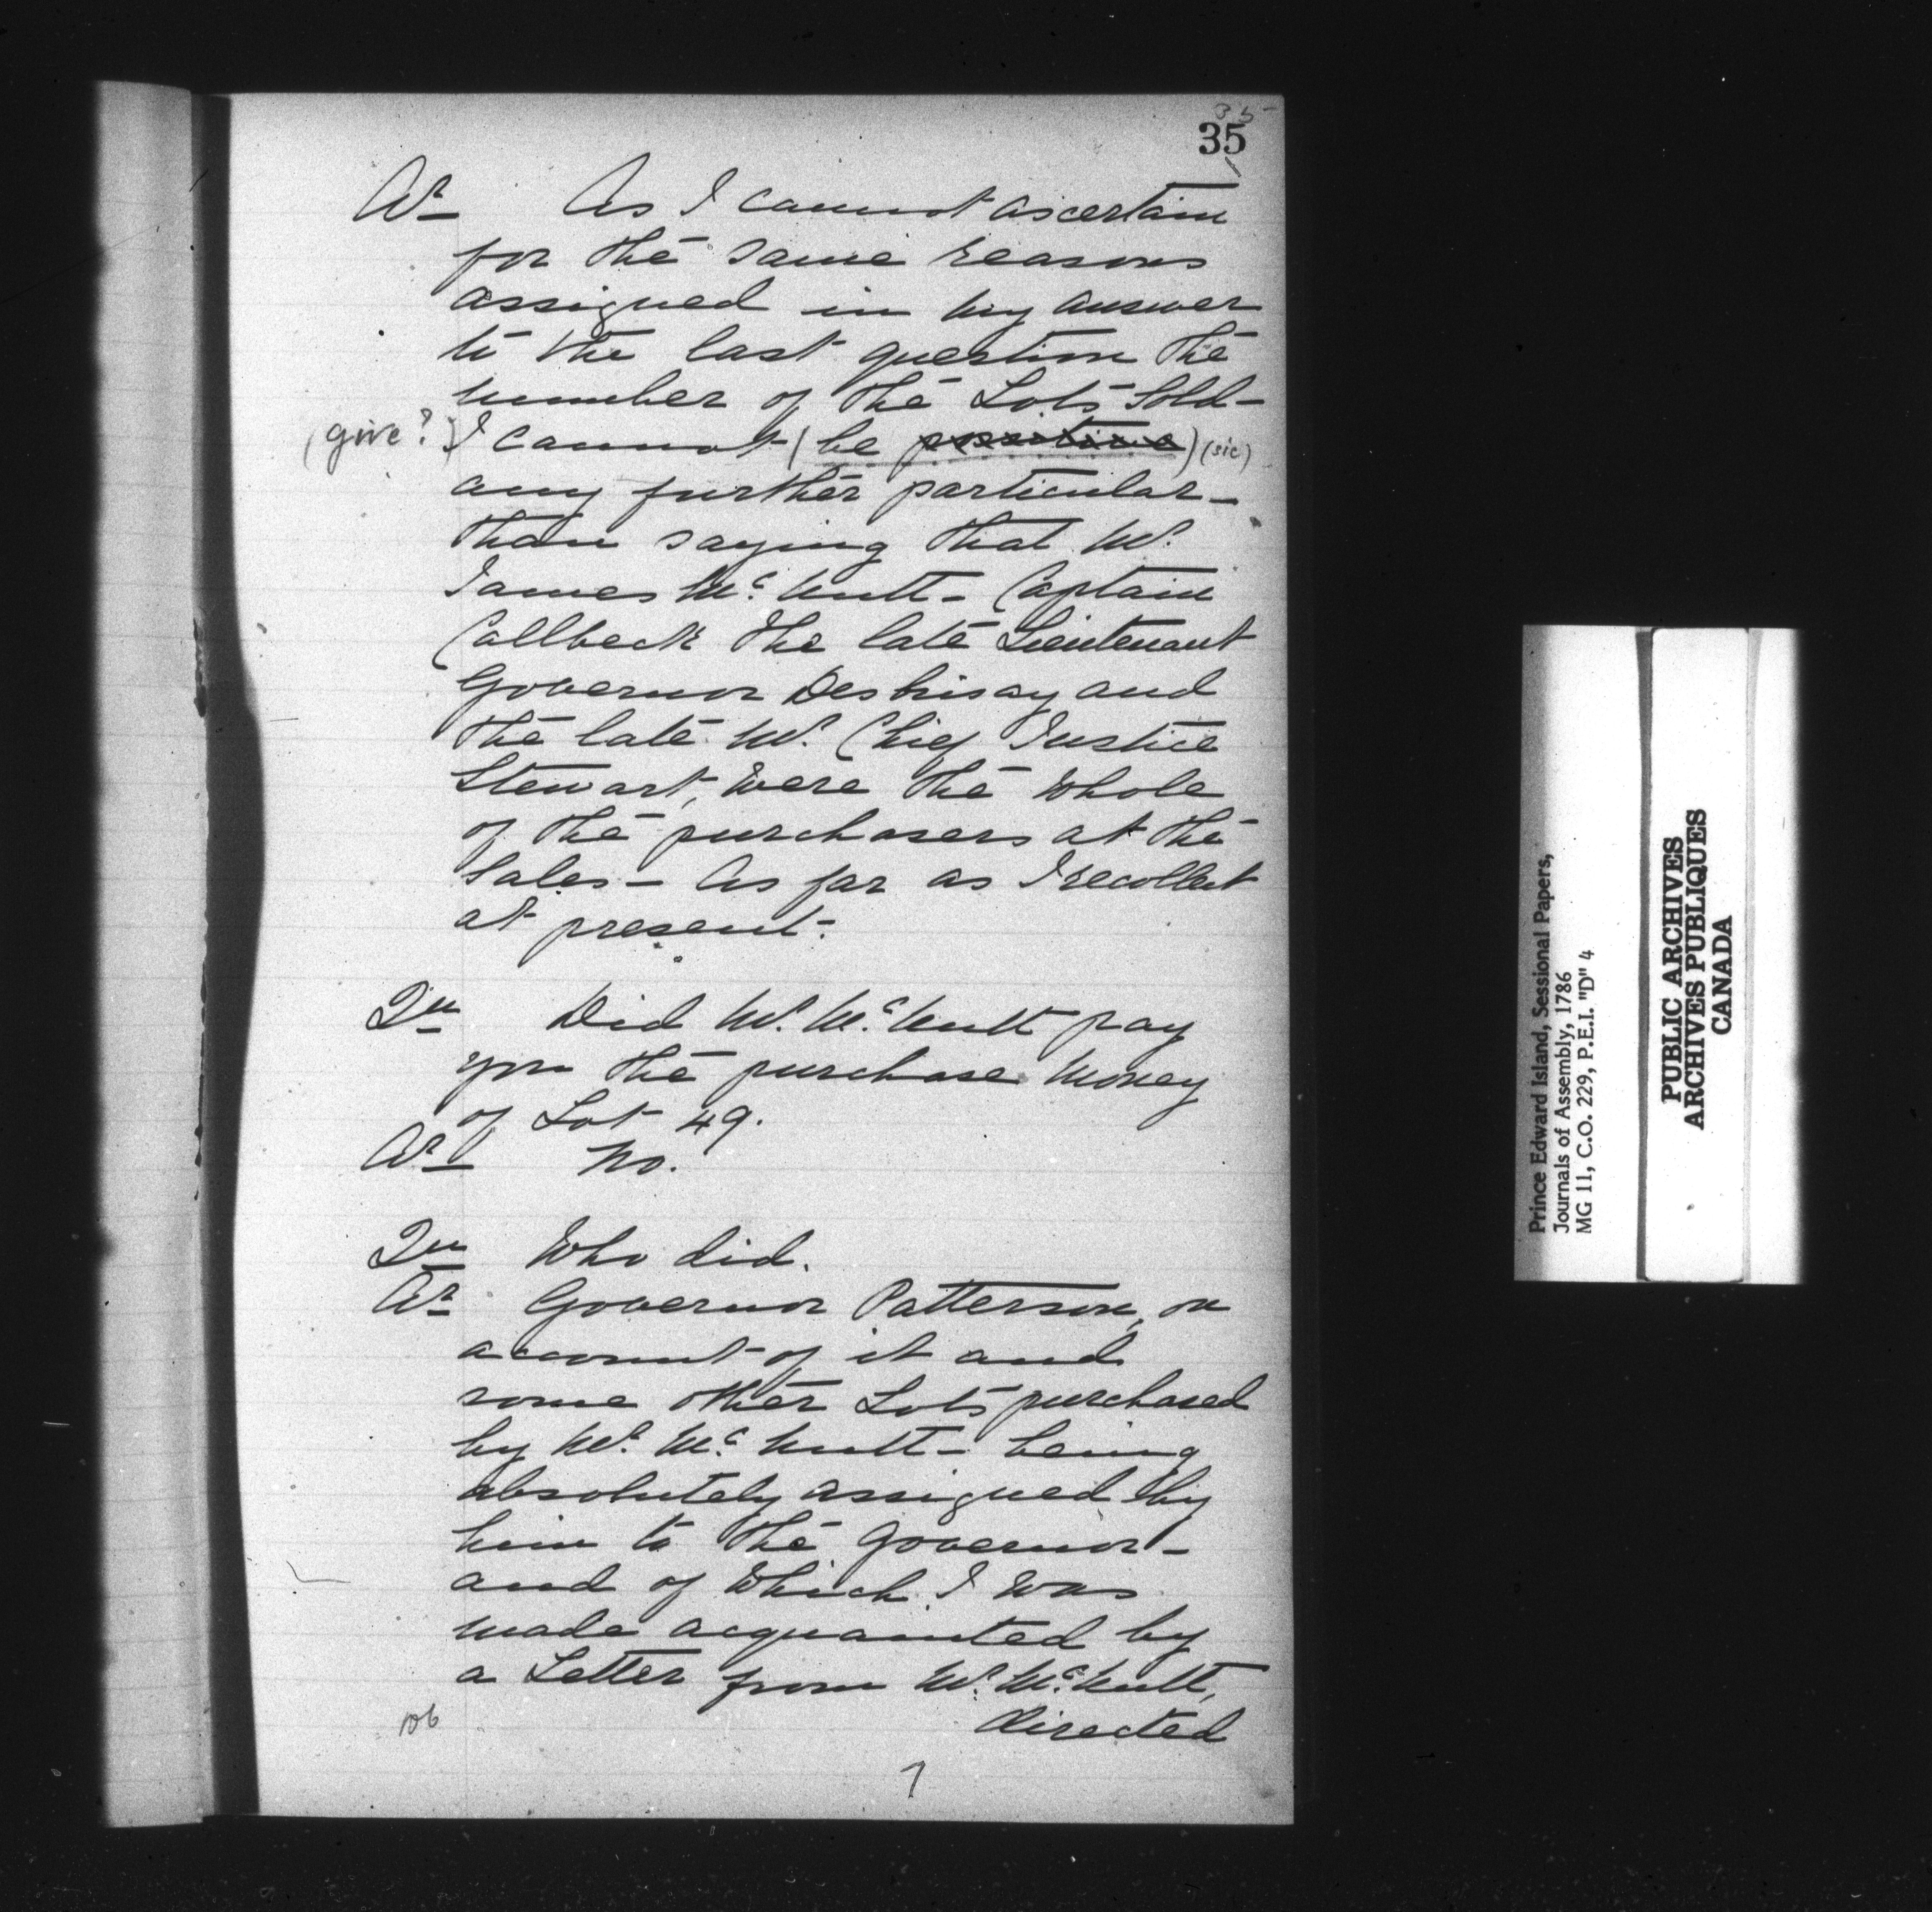 35
35
Ar As I cannot ascertain
for the same reasons
assigned in my answer
to the last question the
number of the Lots Sold-
(give?) I cannot (be positive) (sic)
any further particular-
than saying that Mr.
James Mc. Nutt- Captain
Callbeck the late Lieutenant
Governor Desbrisay and
the late Mr. Chief Justice
Stewart, were the whole
of the purchasers at the
Sales- As far as I recollect
at present.
Qu Did Mr. Mc. Nutt pay
you the purchase Money
of Lot 49.
Ar No.
Qu Who did.
Ar Governor Patterson, on
account of it and
some other Lots purchased
by Mr. Mc. Nutt- being
absolutely assigned by
him to the Governor-
and of Which I was
made acquainted by
a Letter from Mr. Mc. Nutt,
directed
106
7
Prince Edward Island, Sessional Papers,
Journals of Assembly, 1786
MG 11, C.O. 229, P.E.I. "D" 4
PUBLIC ARCHIVES
ARCHIVES PUBLIQUES
CANADA